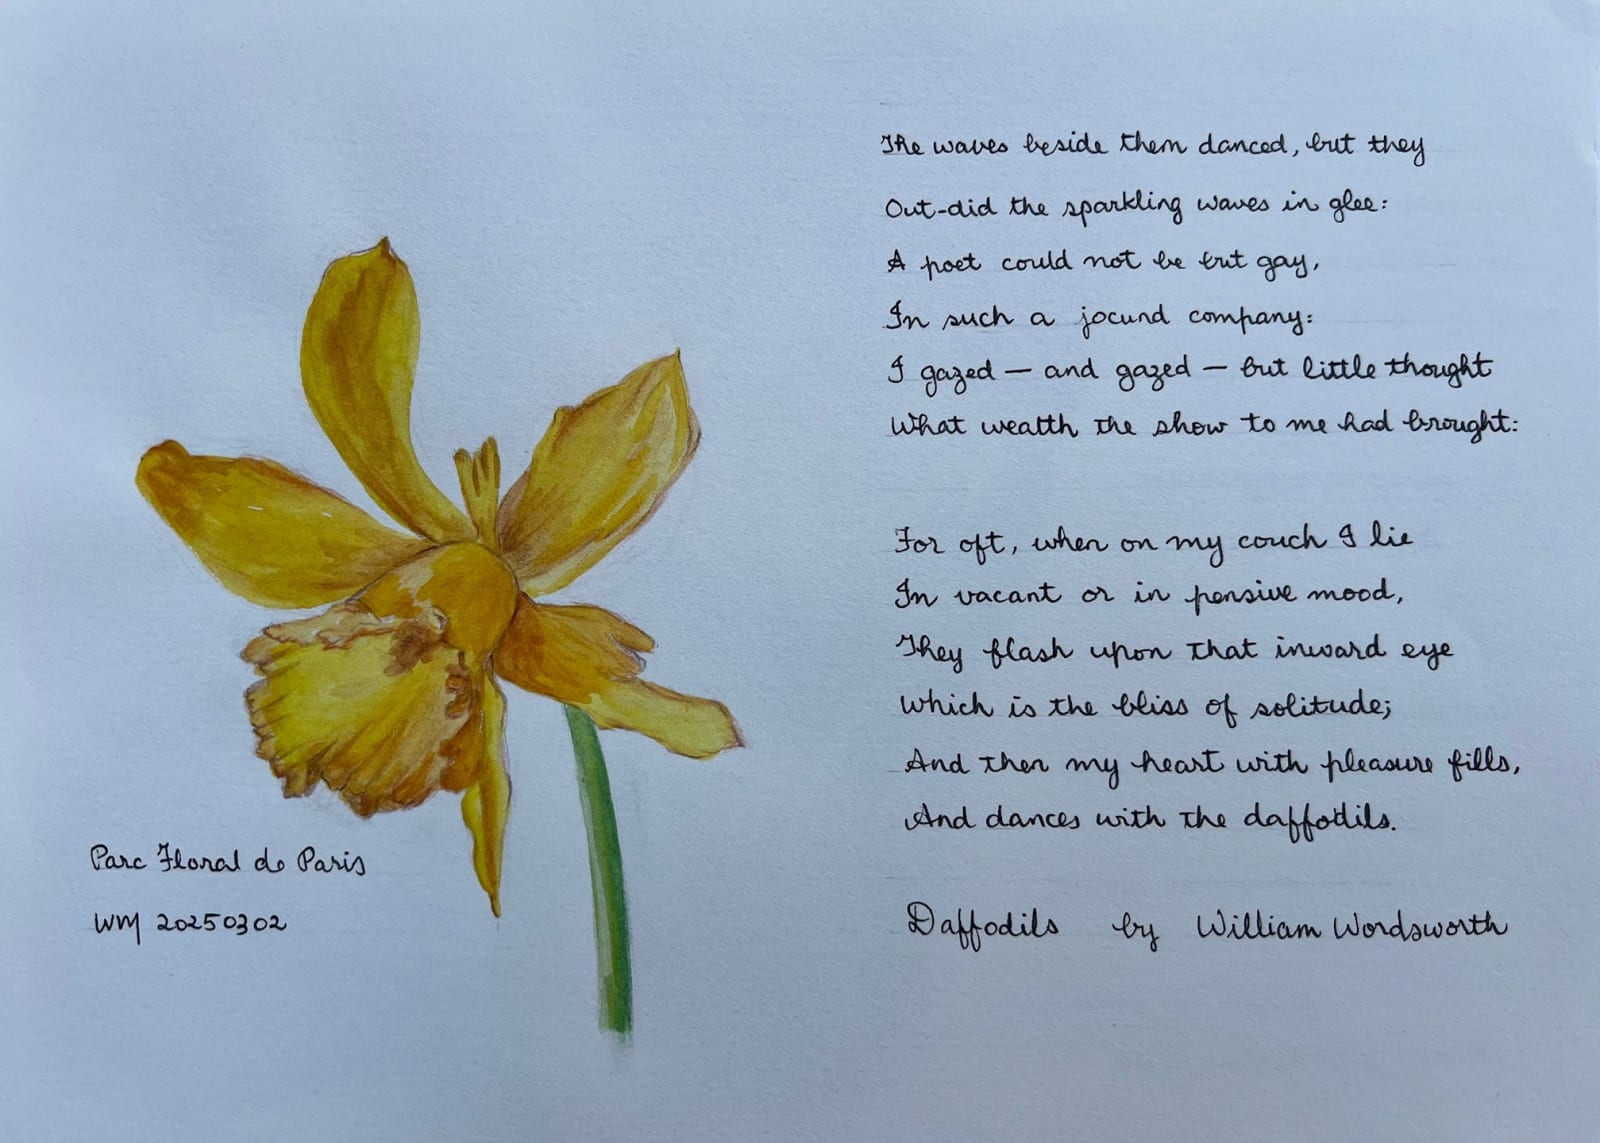 The waves beside them danced, but they
Out-did the sparkling waves in glee:
A poet could not be but gay,
In such a jocund company:
I gazed — and gazed — but little thought
What wealth the show to me had brought:
For oft, when on my couch I lie
In vacant or in pensive mood,
They flash upon that inward eye
Which is the bliss of solitude;
And then my heart with pleasure fills,
And dances with the daffodils.
Daffodils by William Wordsworth
Parc Floral de Paris
WM 20250302